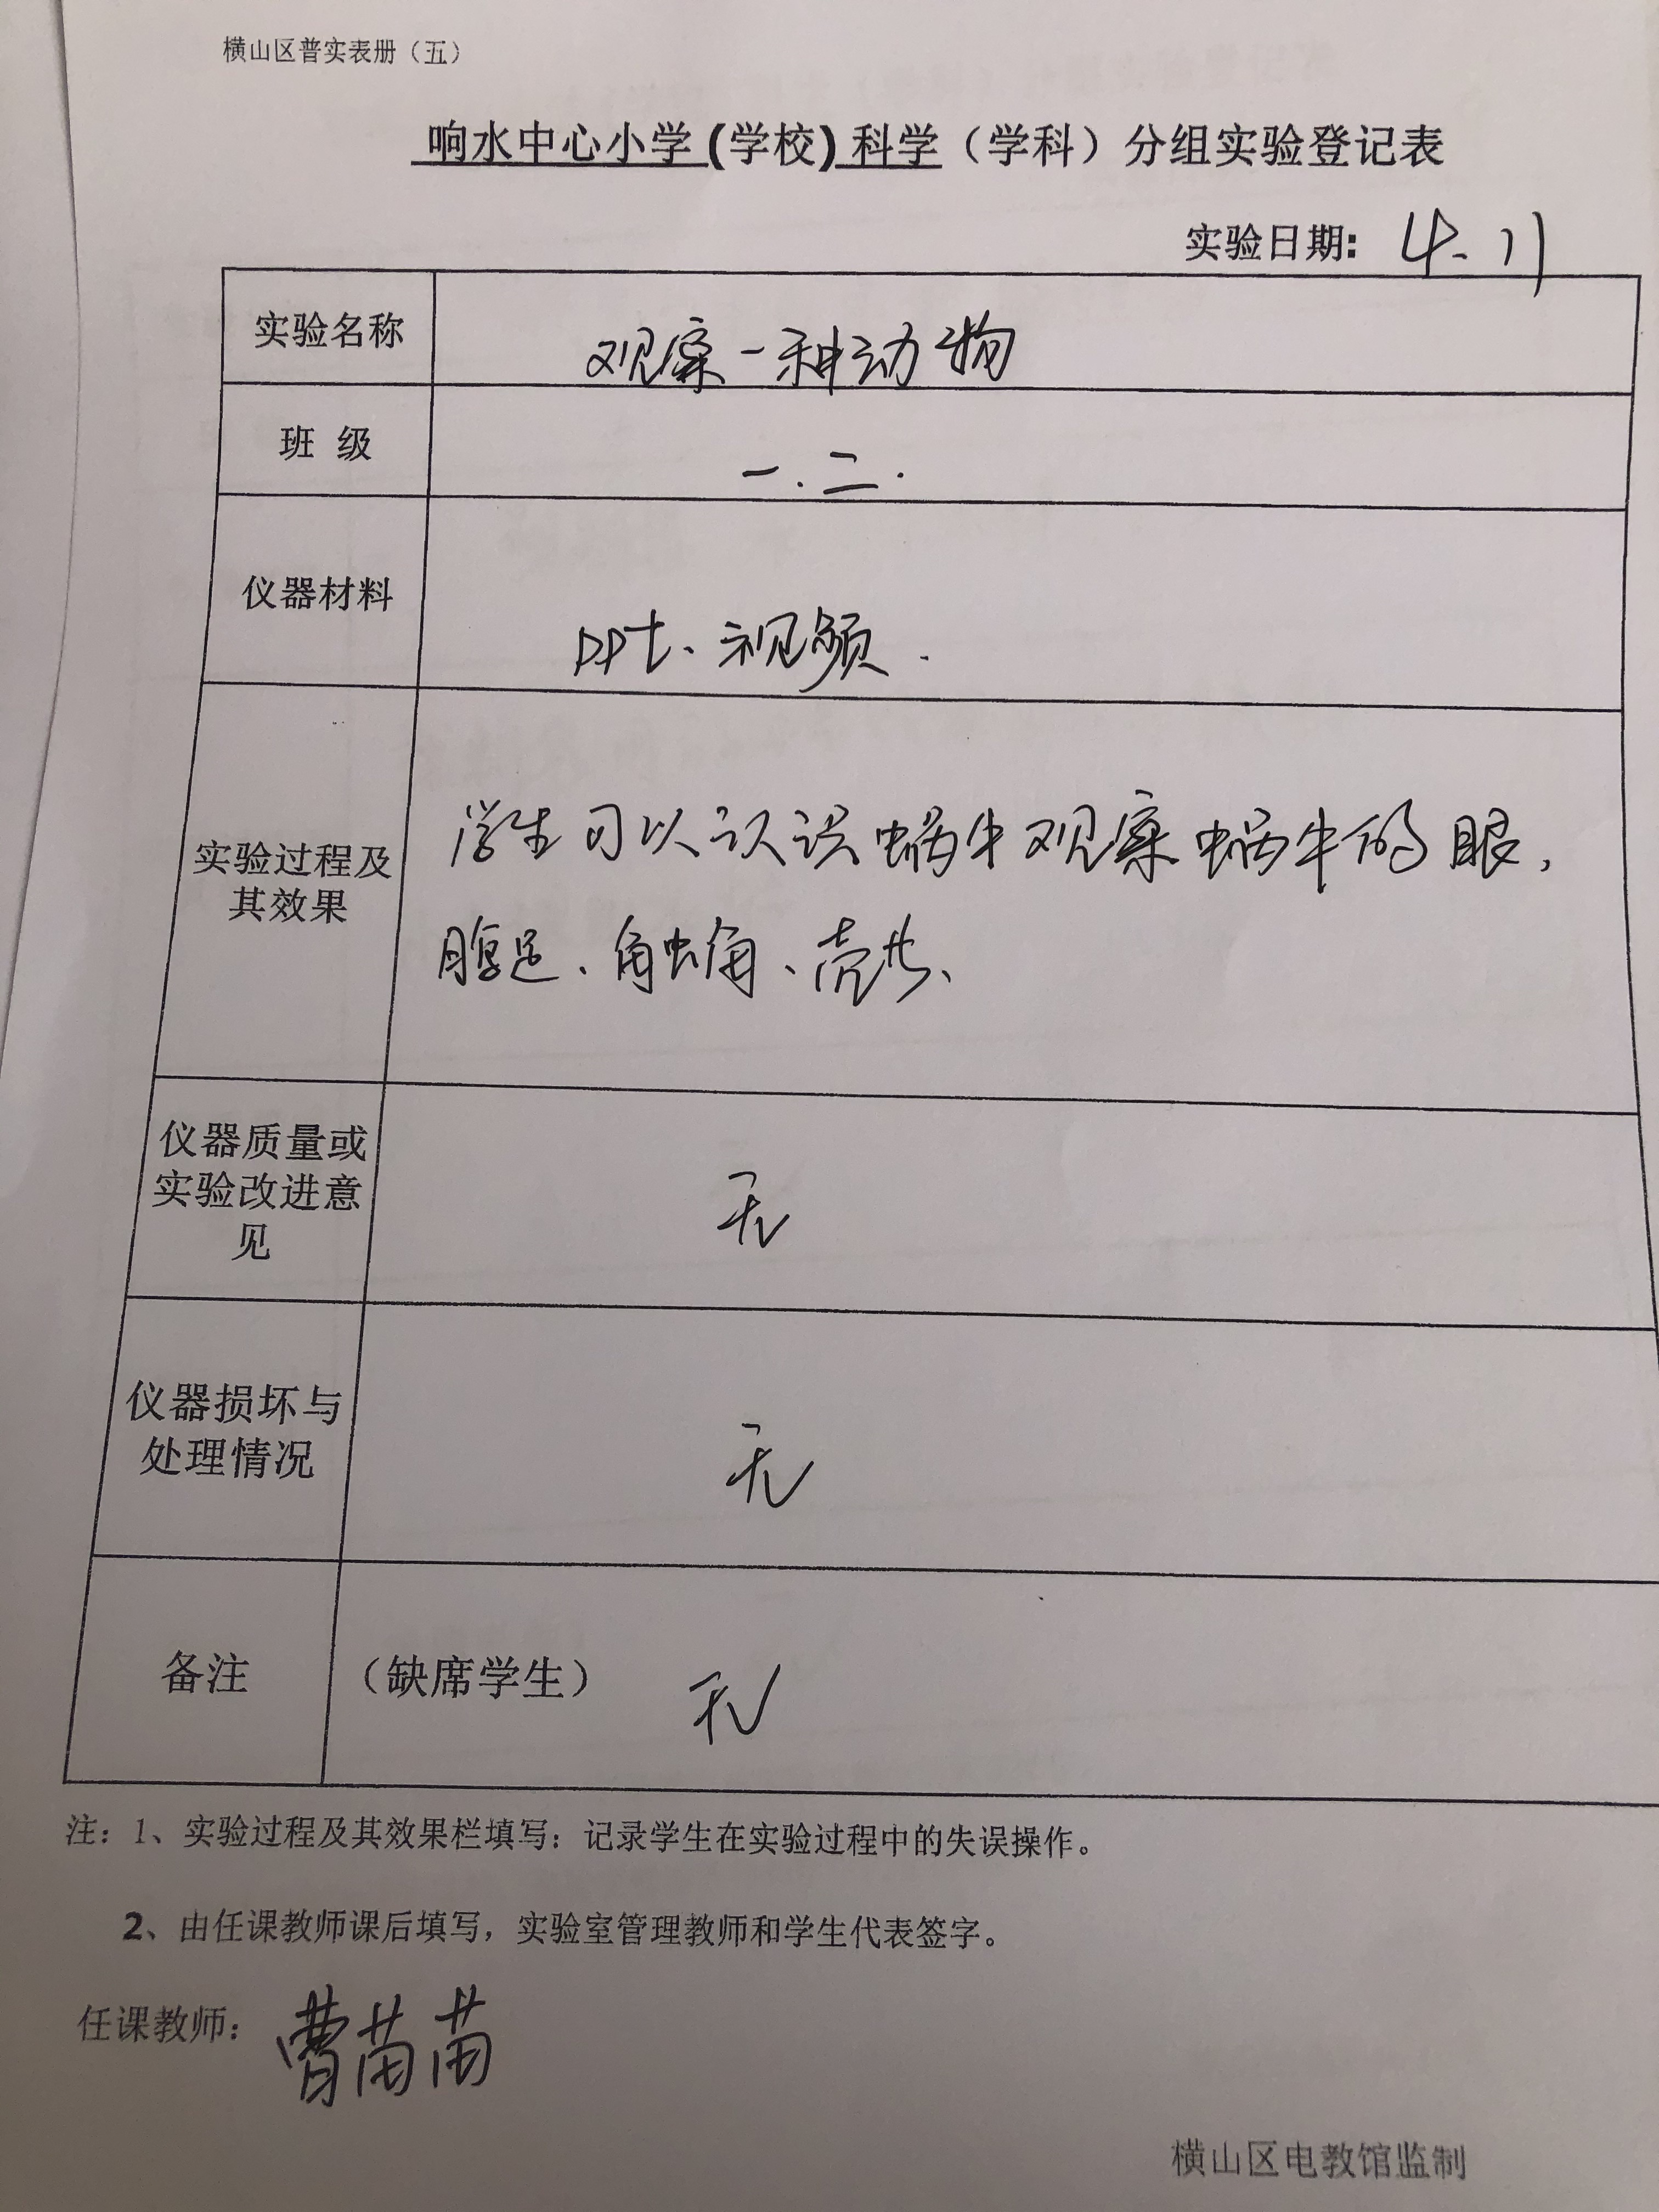 横山区普实表册（五）
响水中心小学(学校)科学（学科）分组实验登记表
实验日期: 4.11
实验名称 观察一种动物
班 级 一.二.
仪器材料 ppt、视频.
实验过程及其效果 学生可以认识蜗牛观察蜗牛的眼，
腹足、触角、壳、
仪器质量或实验改进意见 无
仪器损坏与处理情况 无
备注 （缺席学生） 无
注：1、实验过程及其效果栏填写：记录学生在实验过程中的失误操作。
2、由任课教师课后填写，实验室管理教师和学生代表签字。
任课教师：曹苗苗
横山区电教馆监制